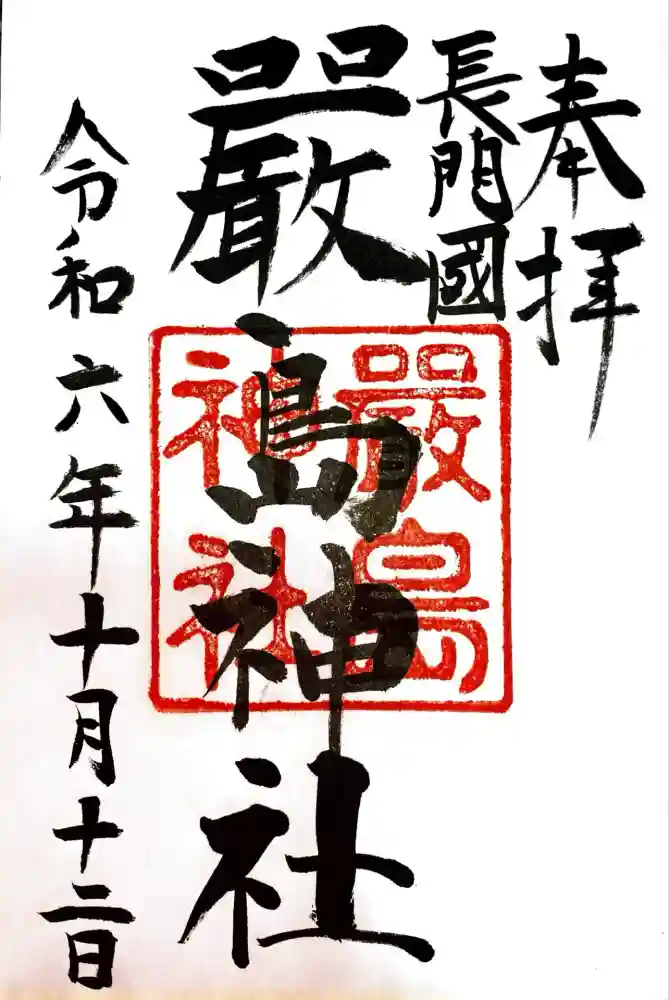 奉拝
長門國
嚴島神社
嚴島
神社
令和六年十月十二日